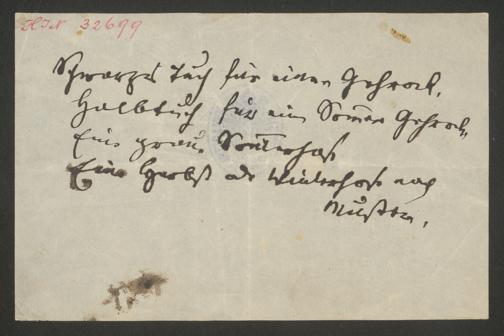 H.I.N. 32699
Schwarzes Tuch für einen Gehrock,
Halbtuch für ein Som̅er Gehrock,
Eine graue Som̅erhose
Eine Herbst oder Winterhose nach
Muster.